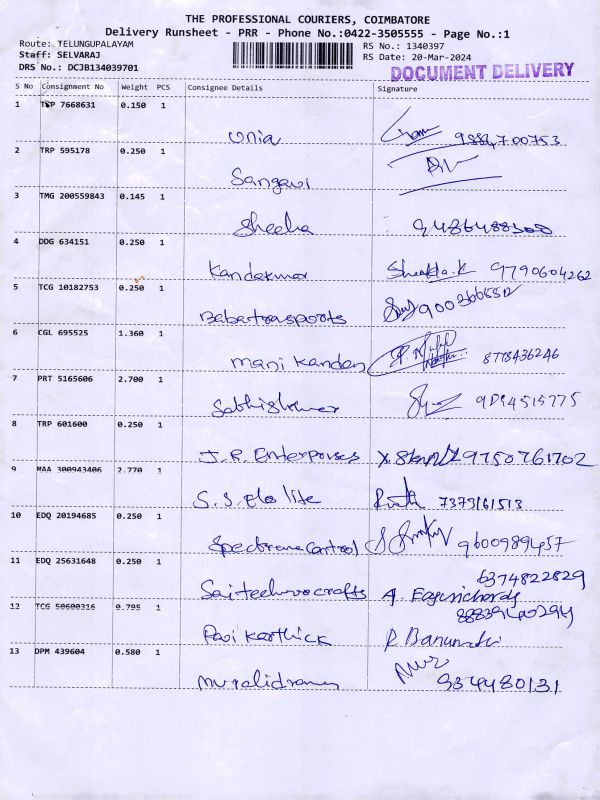 THE PROFESSIONAL COURIERS, COIMBATORE
Delivery Runsheet - PRR - Phone No.:0422-3505555 - Page No.:1
Route: TELUNGUPALAYAM RS No.: 1340397
Staff: SELVARAJ RS Date: 20-Mar-2024
DRS No.: DCJB134039701 DOCUMENT DELIVERY
S No Consignment No Weight PCS Consignee Details Signature
1 TSP 7668631 0.150 1
2 TRP 595178 0.250 1
Sangavi
3 TMG 200559843 0.145 1
Sheeba
4 DDG 634151 0.250 1
Kandakumar 9790604262
5 TCG 10182753 0.250 1
Babatrasports
6 CGL 695525 1.360 1
Mani Kandan 8778436246
7 PRT 5165606 2.700 1
8 TRP 601600 0.250 1
J.R. Enterprises 9750761702
9 MAA 300943406 2.770 1
S.S. elo lite 7373161513
10 EDQ 20194685 0.250 1
Spectrum Control 9600989457
11 EDQ 25631648 0.250 1
6374822829
Saitechnocrafts A.
12 TCG 50600316 0.795 1
Ravi Karthick R. Banumathi
13 DPM 439604 0.580 1
934480131